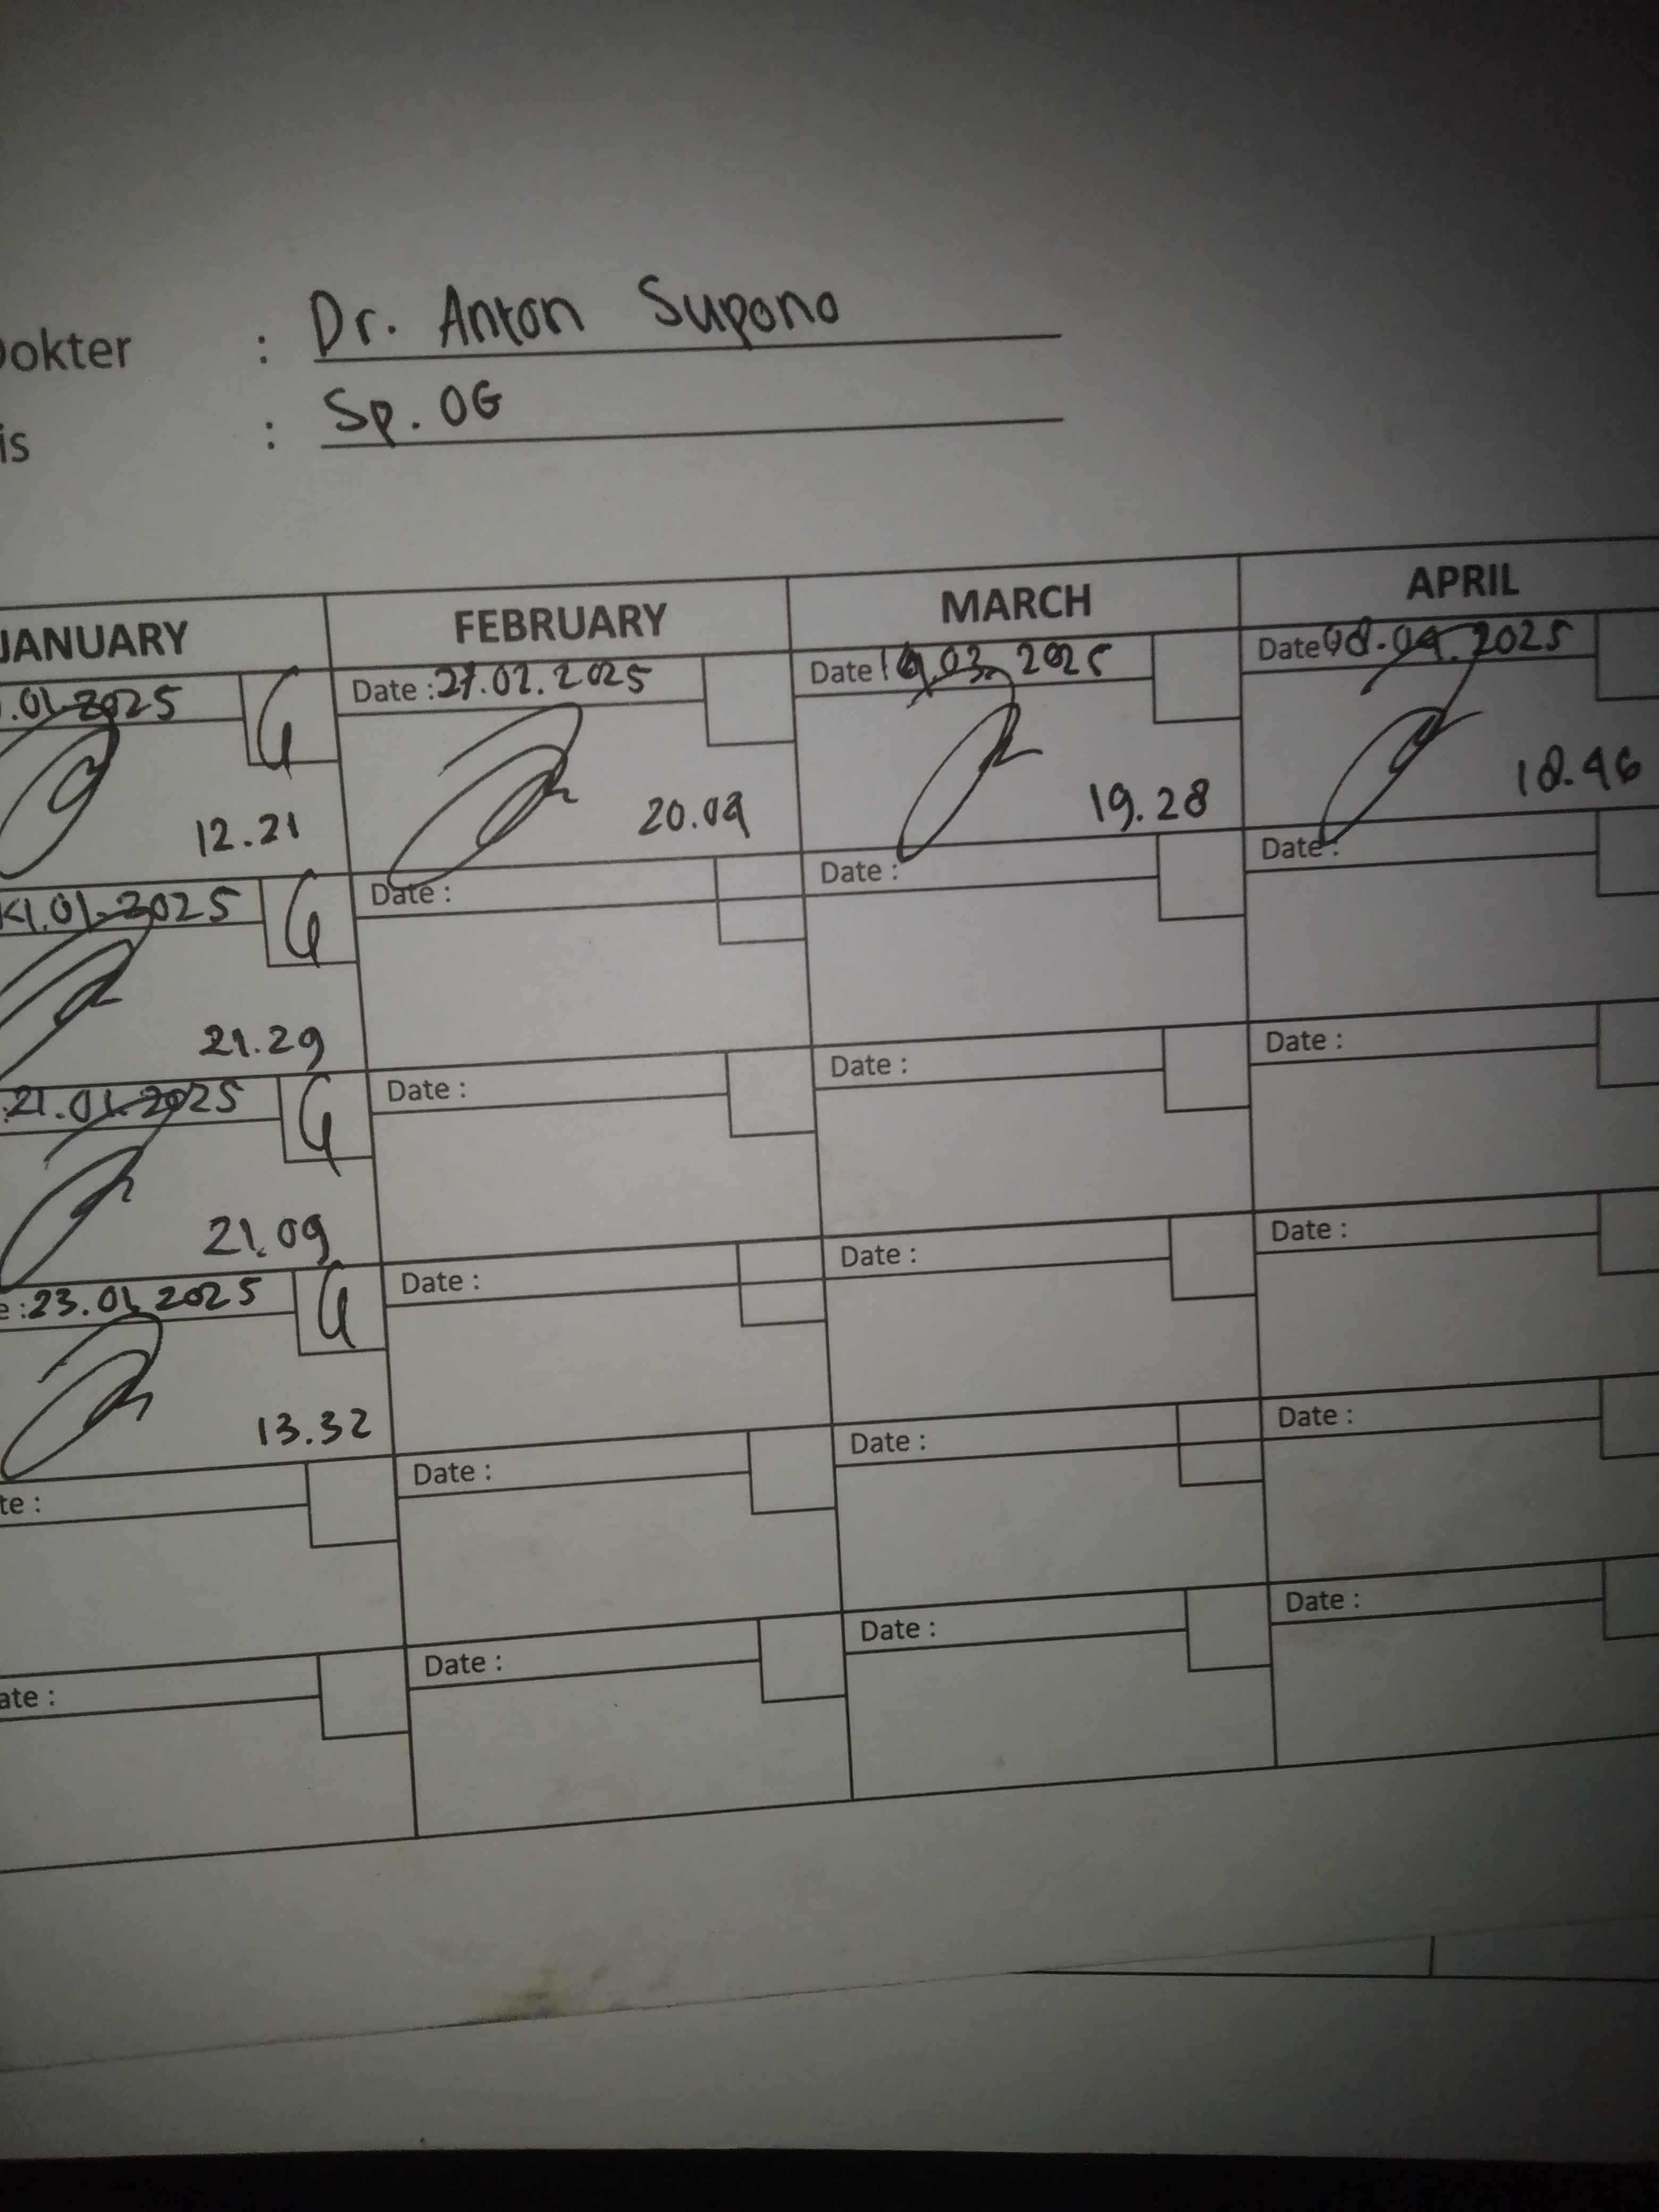 Dokter : Dr. Anton Supono
is : Sp. OG
JANUARY FEBRUARY MARCH APRIL
.01.2025 Date : 27.02.2025 Date 03.2025 Date 08.04.2025
12.21 20.08 19.28 18.46
.01.2025 Date : Date : Date :
21.29
21.01.2025 Date : Date : Date :
21.09
e : 23.01.2025 Date : Date : Date :
13.32
te : Date : Date : Date :
ate : Date : Date : Date :